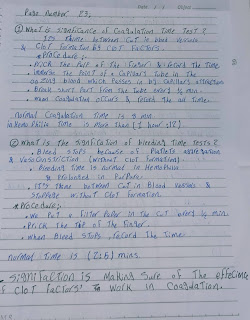 Page Number 23.
① What is significance of Coagulation Time Test?
It's Time between Cut in blood vessels
& Clot Formation by Clot Factors.
• Procedure:
• Prick the Pulp of the Finger & Record the Time.
• immerse the Point of a Capillary Tube in the
oozing blood which Passes in by Capillary attraction
• Break short Part from the Tube every ½ min.
• When Coagulation occurs & Record the as Time.
Normal Coagulation Time is 8 min
in Hemophilia Time is more than (1 hour : 12)
② What is the Significance of bleeding Time Tests?
• Bleed stops because of Platelets aggregation
& Vasoconstriction (without clot formation).
• Bleeding Time is normal in Hemophilia
& Prolonged in Purpura.
• it's Time between Cut in Blood vessels &
stoppage without Clot Formation.
• Procedure:
• We Put a Filter Paper in the Cut every ½ min.
• Prick the Top of the Finger.
• When Blood stops, record the Time
normal Time is (2:5) mins.
- Signification is Making Sure of The effecience
of Clot Factors To work in Coagulation.